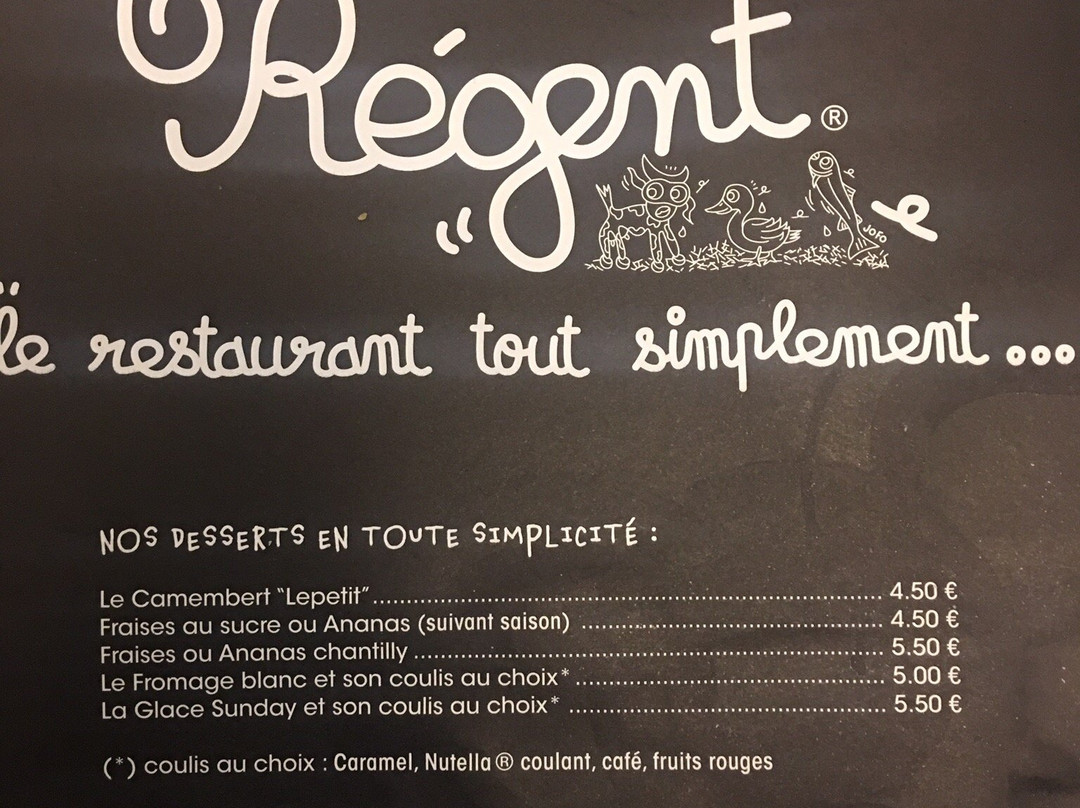 Régent®
JOFO
le restaurant tout simplement...
NOS DESSERTS EN TOUTE SIMPLICITÉ :
Le Camembert "Lepetit".................... 4.50 €
Fraises au sucre ou Ananas (suivant saison) .................... 4.50 €
Fraises ou Ananas chantilly .................... 5.50 €
Le Fromage blanc et son coulis au choix* .................... 5.00 €
La Glace Sunday et son coulis au choix* .................... 5.50 €
(*) coulis au choix : Caramel, Nutella® coulant, café, fruits rouges